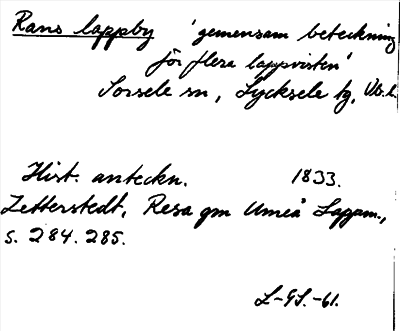 Rans lappby 'gemensam beteckning
för flera lappvisten'
Sorsele sn, Lycksele tg, Vb. l.
Hist. anteckn. 1833.
Zetterstedt, Resa gm Umeå Lappm.,
s. 284. 285.
L-GS.-61.